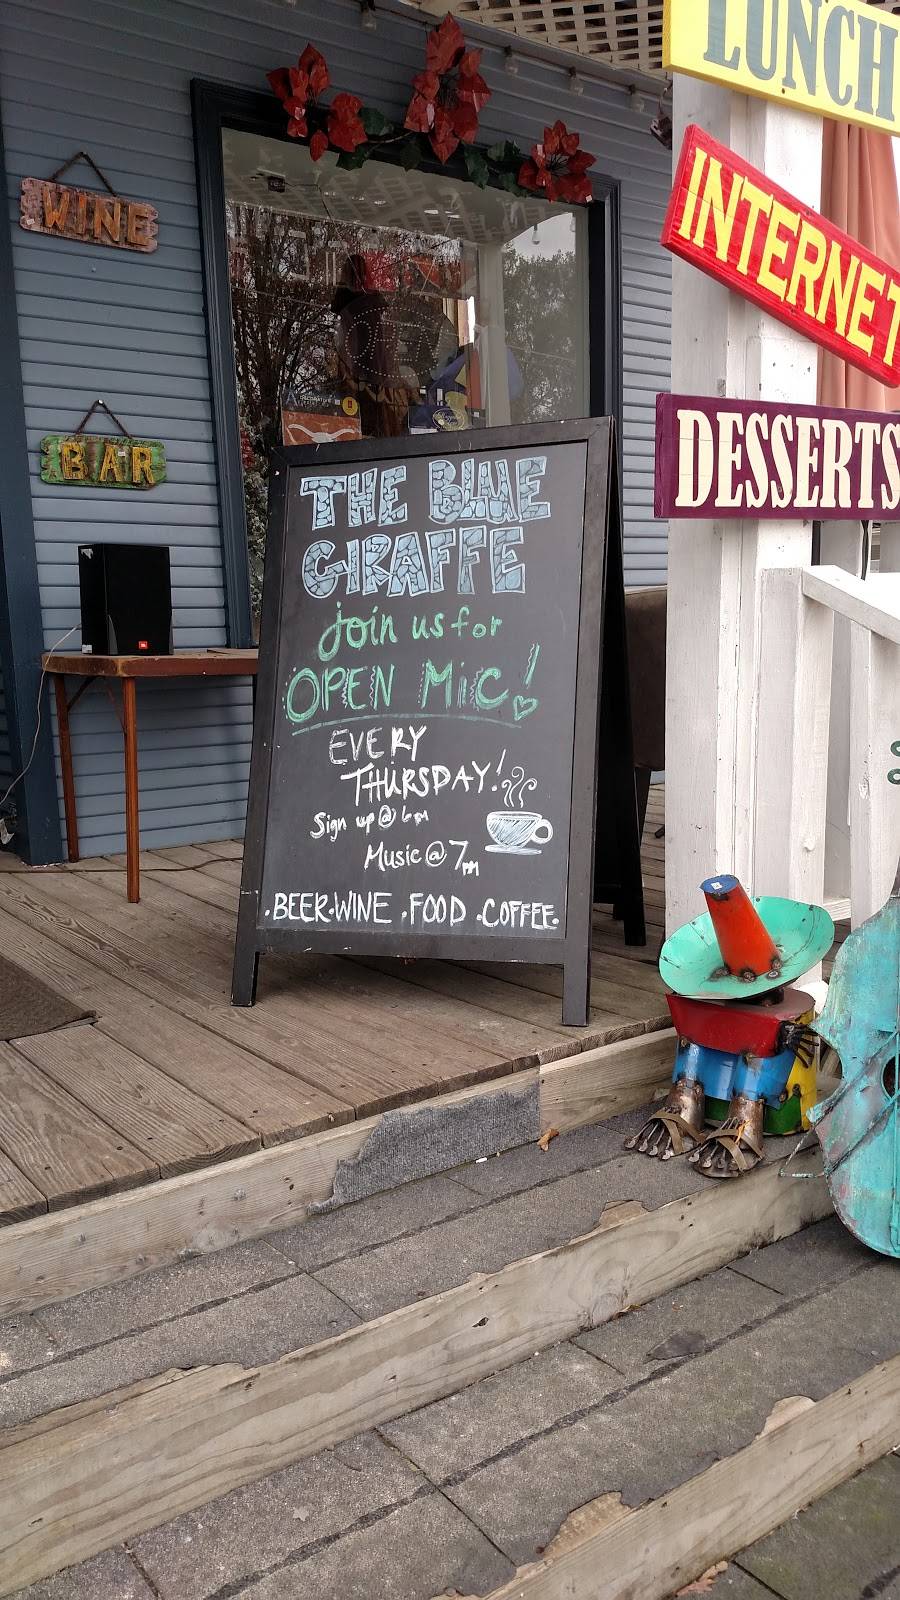 LUNCH
INTERNET
DESSERTS
WINE
BAR
THE BLUE
GIRAFFE
Join us for
OPEN MiC!
EVERY
THURSDAY!
Sign up @ 6pm
Music @ 7pm
.BEER.WINE .FOOD .COFFEE.
JBL